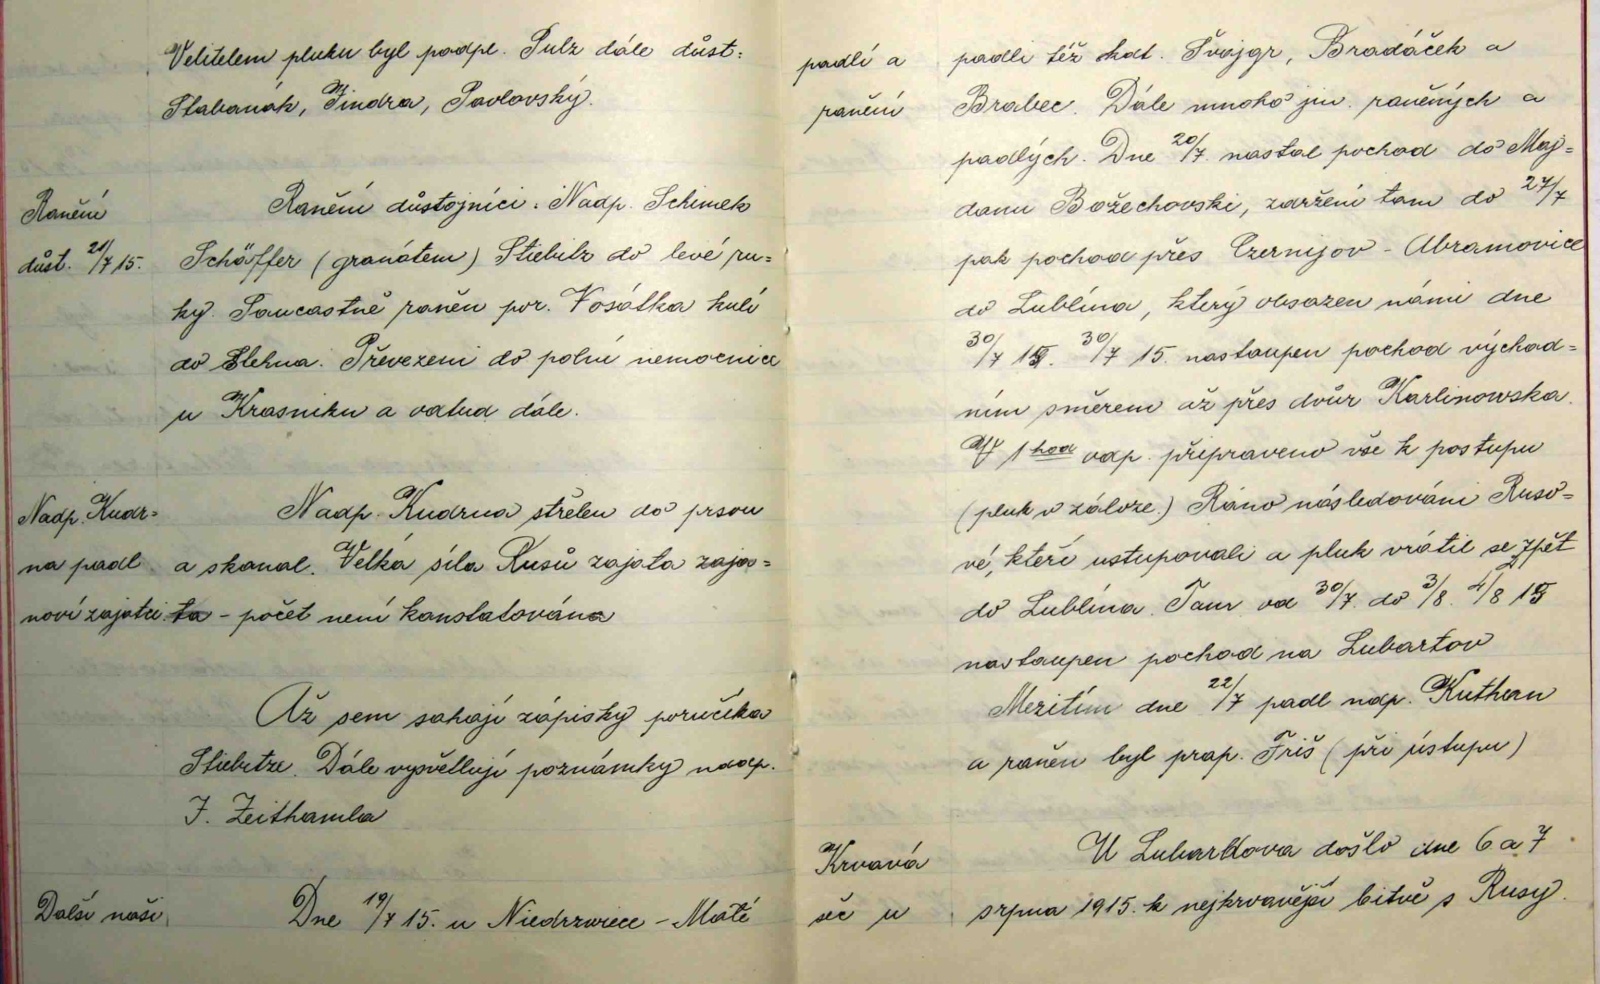 Velitelem pluku byl podpl. Pulz dále důst:
Slabanák, Jindra, Pavlovský.
Ranění
důst. 21/7 15.
Ranění důstojníci: Nadp. Schimek
Schäffer (granátem) Stiebitz do levé ru=
ky. Soucastně raněn por. Vosátka kulí
do stehna. Převezeni do polní nemocnice
u Krasniku a odtud dále.
Nadp. Kudr=
na padl
noví zajatci
Nadp. Kudrna střelen do prsou
a skonal. Velká síla Rusů zajata zaja=
ta - počet není konstatována
Až sem sahají zápisky poručíka
Stiebitze. Dále vysvětlují poznámky nadp.
J. Zeithamla
Další naši
Dne 19/7 15. u Niedrzwiece - Malé
padlí a
ranění
padli též kdt. Švajgr, Bradáček a
Brabec. Dále mnoho jin. raněných a
padlých. Dne 20/7. nastal pochod do Maj=
danu Božechovski, zdržení tam do 27/7
pak pochod přes Czernijov - Abramovice
do Lublína, který obsazen námi dne
30/7 15. 30/7 15. nastoupen pochod východ=
ním směrem až přes dvůr Karlinowska.
V 1 hod odp. připraveno vše k postupu
(pluk v záloze.) Ráno následováni Ruso=
vé, kteří ustupovali a pluk vrátil se zpět
do Lublína. Tam od 30/7. do 3/8. 4/8 15
nastoupen pochod na Lubartov
Mezitím dne 22/7 padl ndp. Kuthan
a raněn byl prap. Friš (při ústupu)
Krvavá
seč u
U Lubartova došlo dne 6 a 7
srpna 1915. k nejkrvavější bitvě s Rusy.